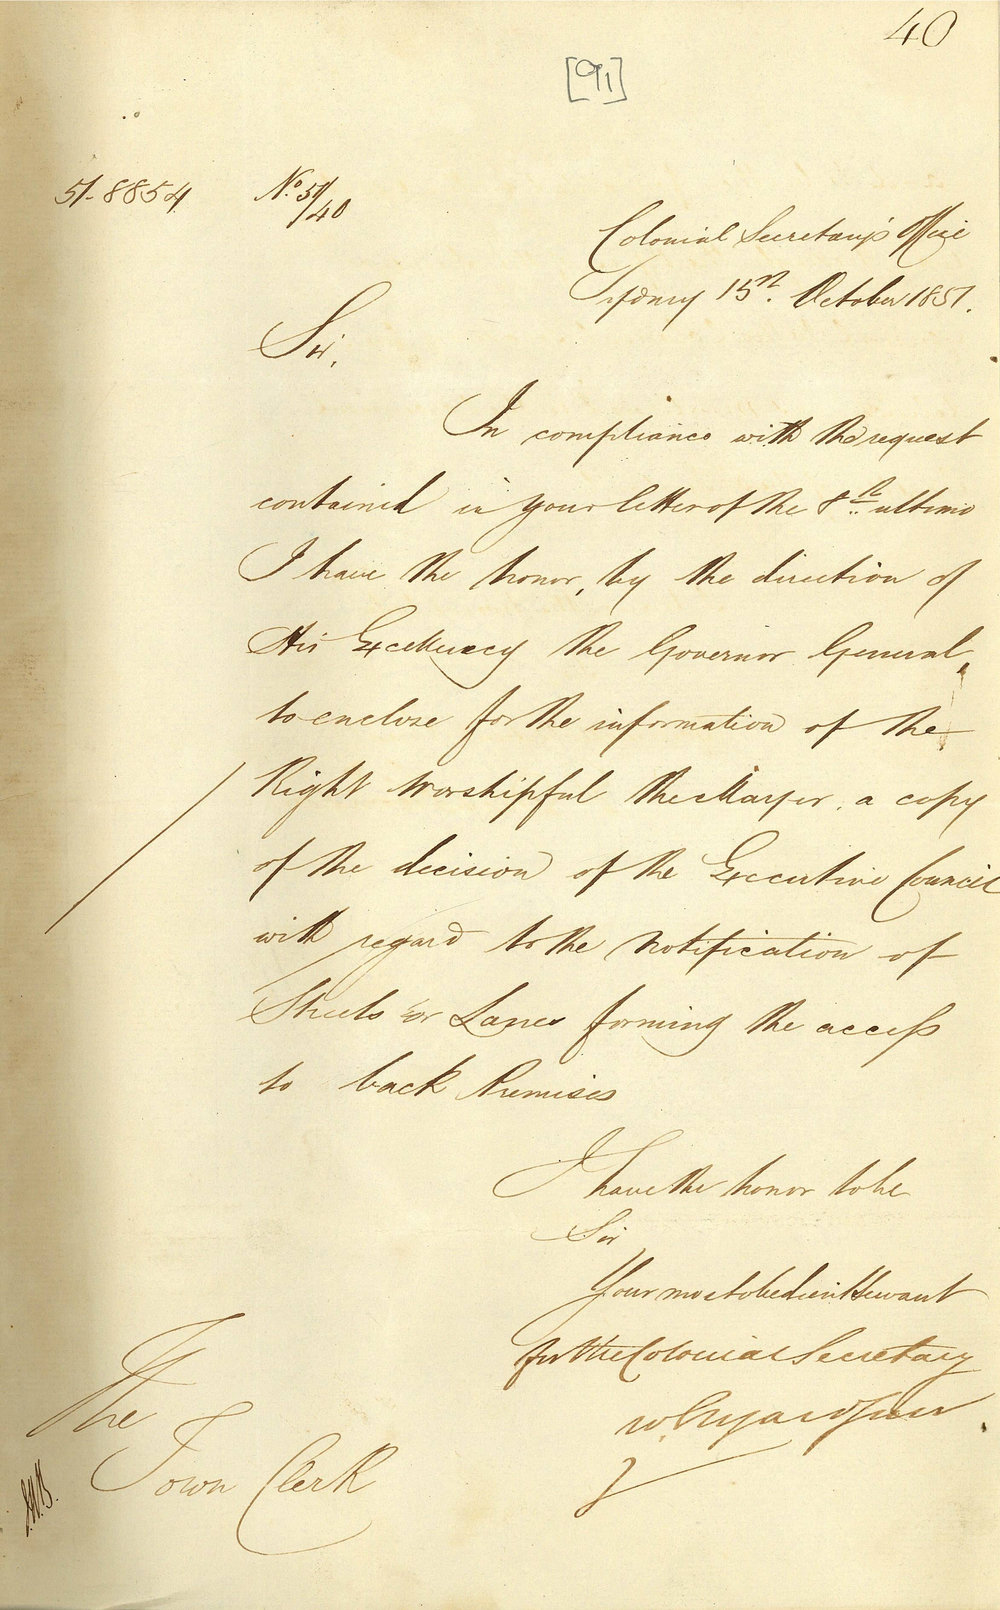 40
[91]
51-8854
No. 51/40
Colonial Secretary's Office
Sydney 15th. October 1851.
Sir,
In compliance with the request
contained in your letter of the 8th. ultimo
I have the honor, by the direction of
His Excellency the Governor General,
to enclose for the information of the
Right Worshipful the Mayor, a copy
of the decision of the Executive Council
with regard to the notification of
Streets or Lanes forming the access
to back Premises
I have the honor to be
Sir
Your most obedient Servant
for the Colonial Secretary
The
Town Clerk